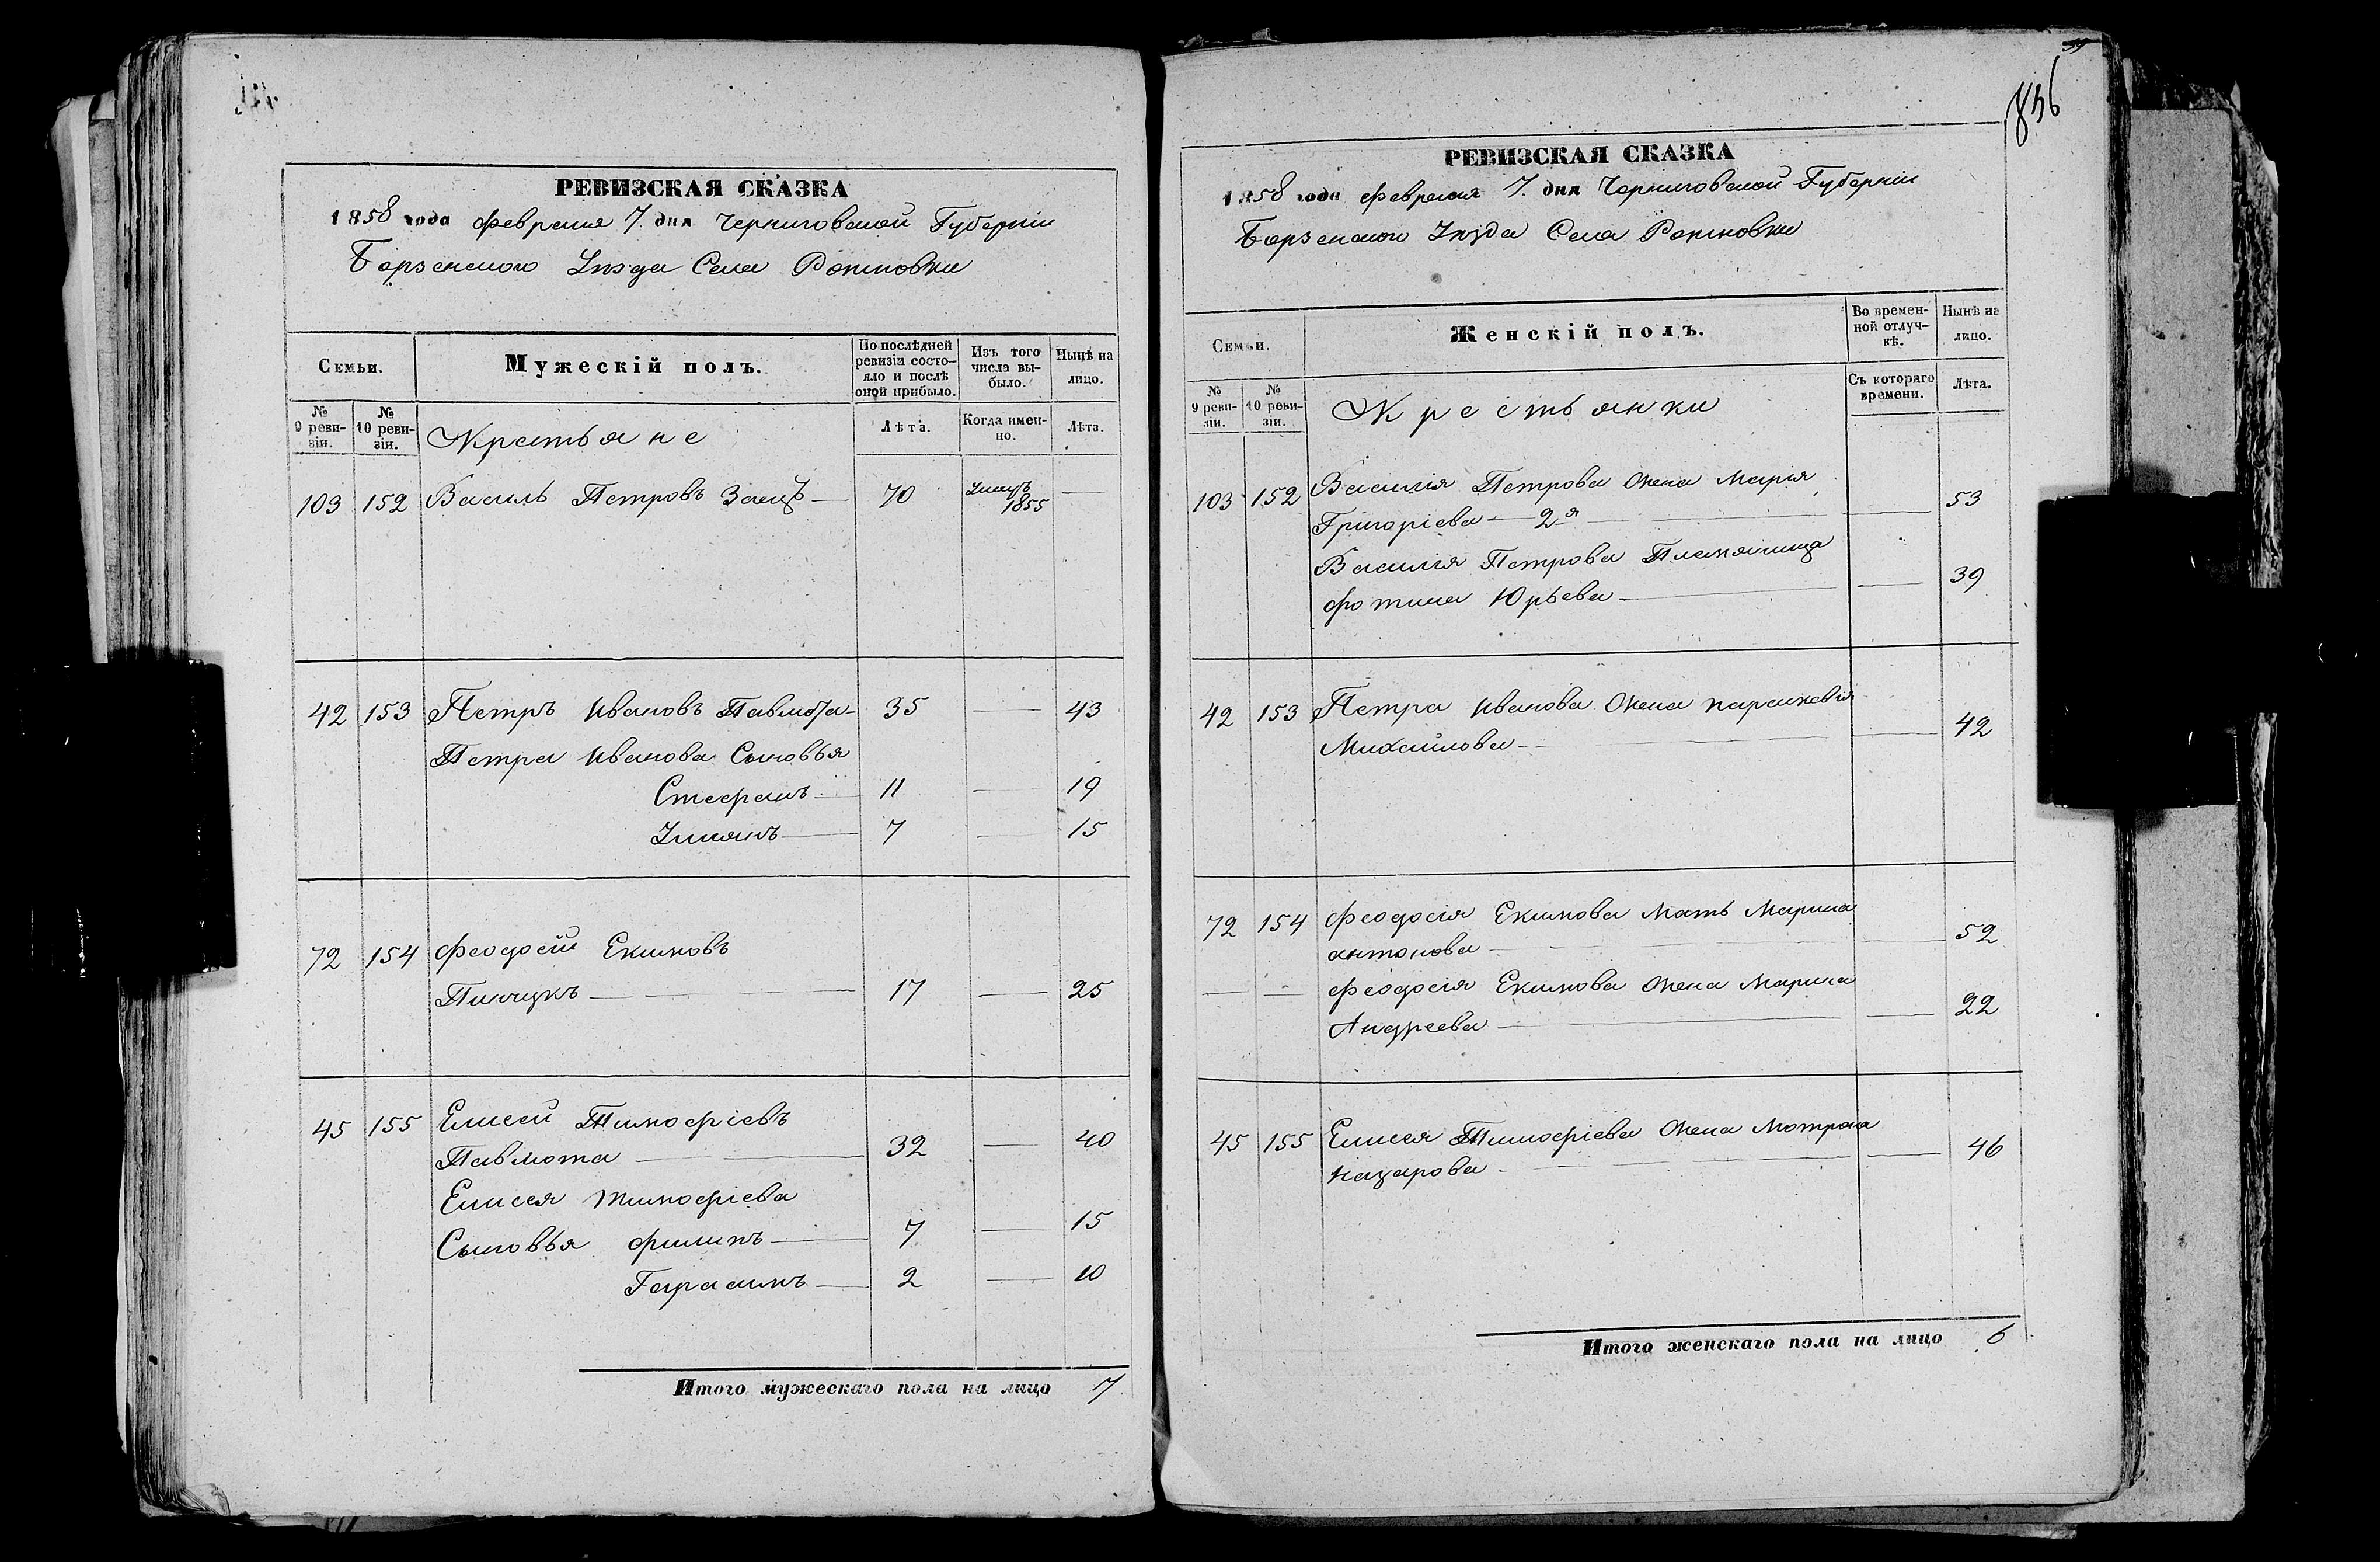 836
РЕВИЗСКАЯ СКАЗКА
1858 года Февраля 7. дня Черниговской Губерніи
Борзенского Уѣзда Села
Семьи.
Мужескій полъ.
По послѣдней ревизіи состояло и послѣ оной прибыло.
Изъ того числа выбыло.
Нынѣ на лицо.
№ 9 ревизіи.
№ 10 ревизіи.
Крестьяне
Лѣта.
Когда именно.
Лѣта.
103 152 Василь Петровъ Заецъ — 70 Умеръ 1855 —
42 153 Петръ Ивановъ Павлюта — 35 — 43
Петра Иванова Сыновья
Стефанъ — 11 — 19
7 — 15
72 154 Феодосій Екимовъ
Пинчукъ — 17 — 25
45 155 Елисей Тимофіевъ
Павлюта — 32 — 40
Елисея Тимофіева
Сыновья Филипъ — 7 — 15
Герасимъ — 2 — 10
Итого мужескаго пола на лицо 7
РЕВИЗСКАЯ СКАЗКА
1858 года Февраля 7. дня Черниговской Губерніи
Борзенского Уѣзда Села
Семьи.
Женскій полъ.
Во временной отлучкѣ.
Нынѣ на лицо.
№ 9 ревизіи.
№ 10 ревизіи.
Крестьянки
Съ котораго времени.
Лѣта.
103 152 Василія Петрова Жена Марія
Григоріева — 2я — 53
Василія Петрова Племяница
Фотина Юрьева — 39
42 153 Петра Иванова Жена Параскевія
Михайлова — 42
72 154 Феодосія Екимова Мать Марина
Антонова — 52
— — Феодосія Екимова Жена Марина
Андреева — 22
45 155 Елисея Тимофіева Жена Мотрона
Назарова — 46
Итого женскаго пола на лицо 6